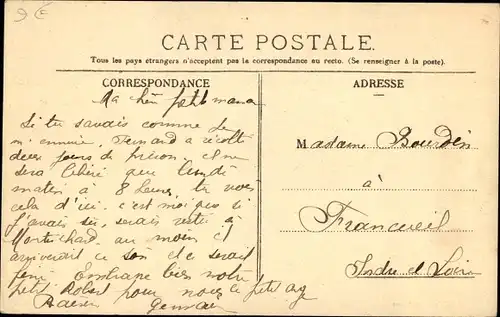 CARTE POSTALE.
Tous les pays étrangers n'acceptent pas la correspondance au recto. (Se renseigner à la poste).
CORRESPONDANCE
ADRESSE
Ma petit mama
Si tu savais comme je
m'ennuie, Fernand a récolté
deux jours de prison, il ne
sera libéré que lundi
matin à 8 heures, tu vois
cela d'ici. c'est moi pas si
j'avais su, serais resté à
Montrichard au moins il
arriverait ce soir et ce serait
fini Embrasse bien notre
petit Robert pour nous
Germain
Madame Bourdin
à
Francueil
Indre et Loire